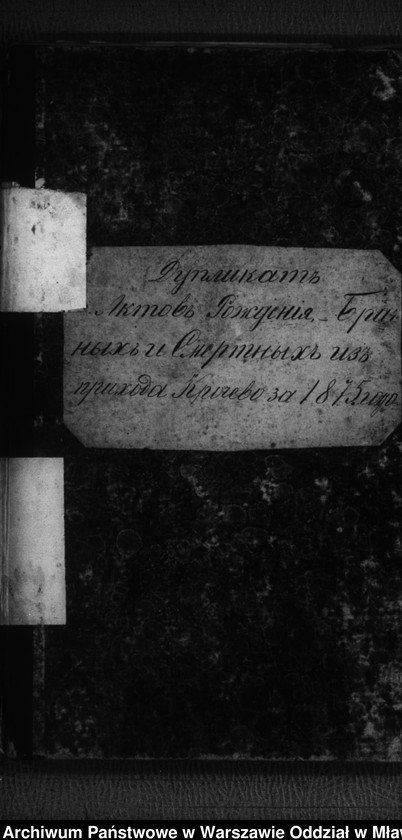 Дупликатъ
Актовъ Рожденія, Брач-
ныхъ и Смертныхъ изъ
прихода за 1875 годъ
Archiwum Państwowe w Warszawie Oddział w Mła